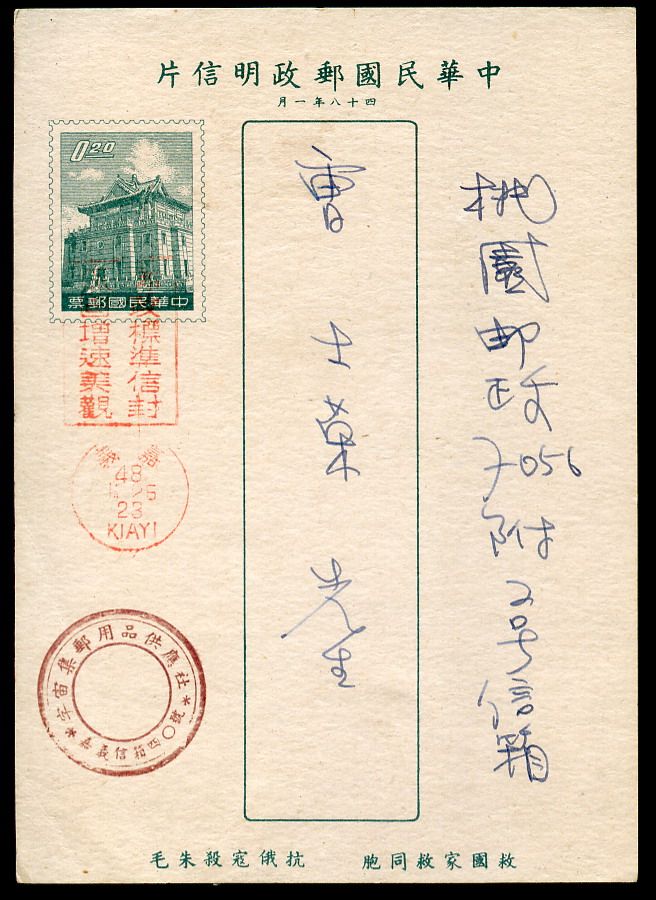 中華民國郵政明信片
四十八年一月
桃園郵政7056附2号信箱
曹士 先生
0.20
中華民國郵票
標準信封
增速美觀
嘉義
48
25
23
KIAYI
宇宙集郵用品供應社
*嘉義信箱四〇號*
救國家救同胞
抗俄寇殺朱毛